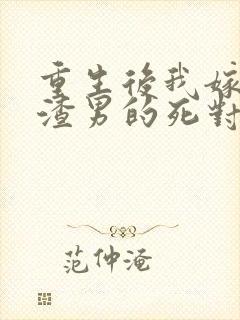 重生後我嫁
渣男的死對
范仲淹